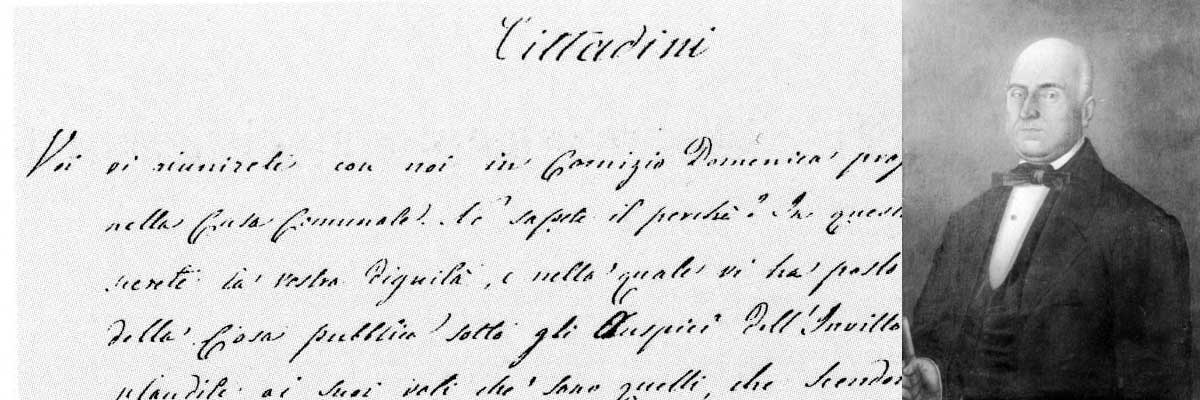 Cittadini
Voi vi riunirete con noi in Comizio Domenica
nella Casa Comunale. Ne sapete il perchè? In
la vostra dignità, e nella quale vi ha posto
della Cosa pubblica sotto gli Auspici dell'Invitto
plaudite ai suoi voti che sono quelli, che